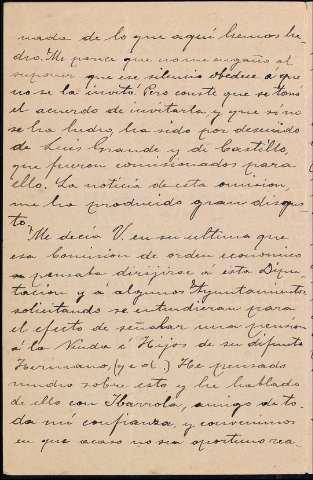 nada de lo que aquí hemos he-
cho. Me parece que no me engaño al
suponer que ese silencio obedece á que
no se la invitó. Pero conste que se tomó
el acuerdo de invitarla, y que si no
se ha hecho, ha sido por descuido
de Luis Grande y de Castillo,
que fueron comisionados para
ello. La noticia de esta omision,
me ha producido gran disgus
to.
Me decía V. en su ultima que
esa Comision de orden economico
pensaba dirijirse á esta Dipu-
tación y á algunos Ayuntamientos
solicitando se entendieran para
el efecto de señalar una pension
á la Viuda é Hijos de su difunto
Hermano, (q e d.) He pensado
mucho sobre esto y he hablado
de ello con Ibarrola, amigo de to-
da mi confianza, y convenimos
en que acaso no sea oportuno rea-